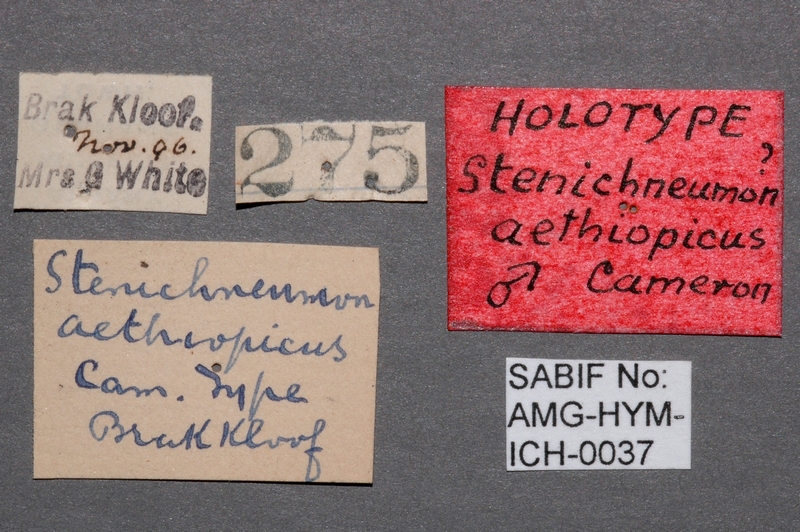 Brak Kloof.
Nov. 96.
Mrs G White
275
HOLOTYPE ?
Stenichneumon
aethiopicus
♂ Cameron
Stenichneumon
aethiopicus
Cam. Type
Brak Kloof
SABIF No:
AMG-HYM-
ICH-0037